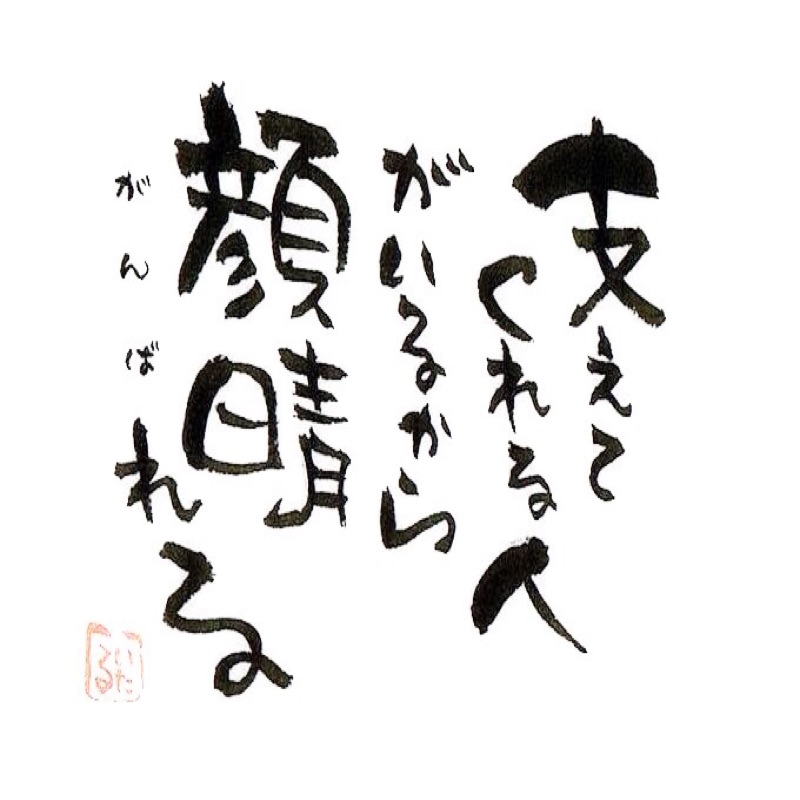 支えて
くれる人
がいるから
顔晴れる
がんば
いたる